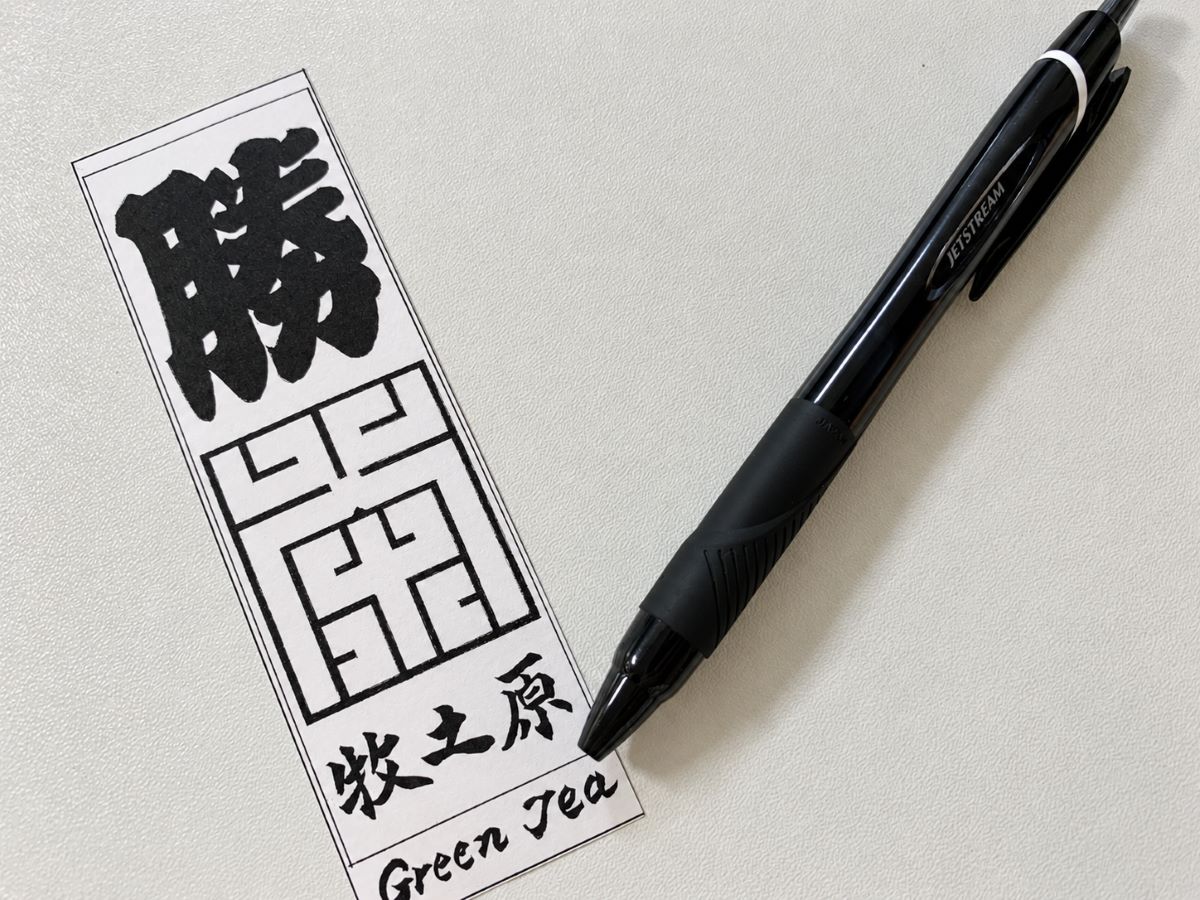 勝
牧土原
Green Tea
JETSTREAM